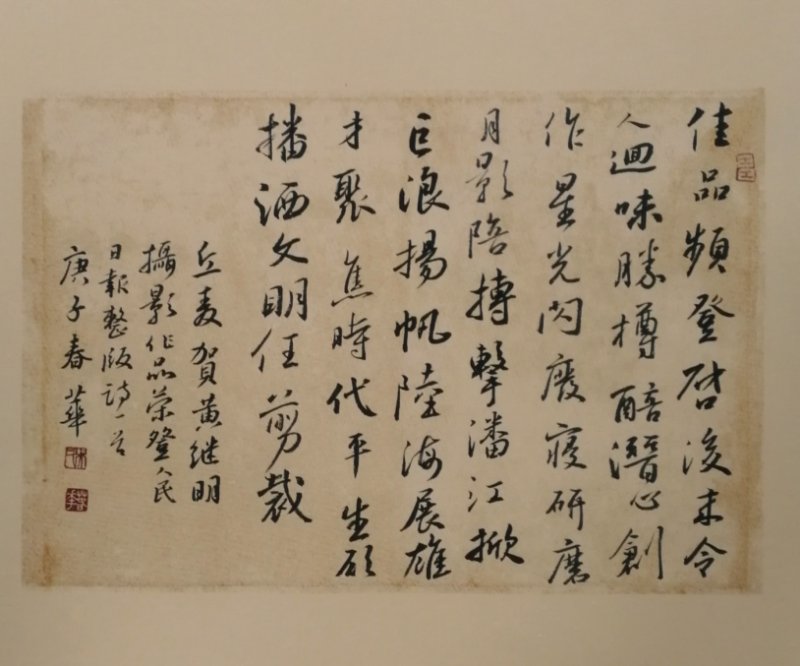 佳品頻登啓後来令
人迴味勝樽醅潛心創
作星光閃廢寢研磨
月影陪搏擊潘江掀
巨浪揚帆陸海展雄
才聚焦時代平生願
播洒文明任剪裁
丘麦賀黄继明
攝影作品荣登人民
日報整版詩一首
庚子春華